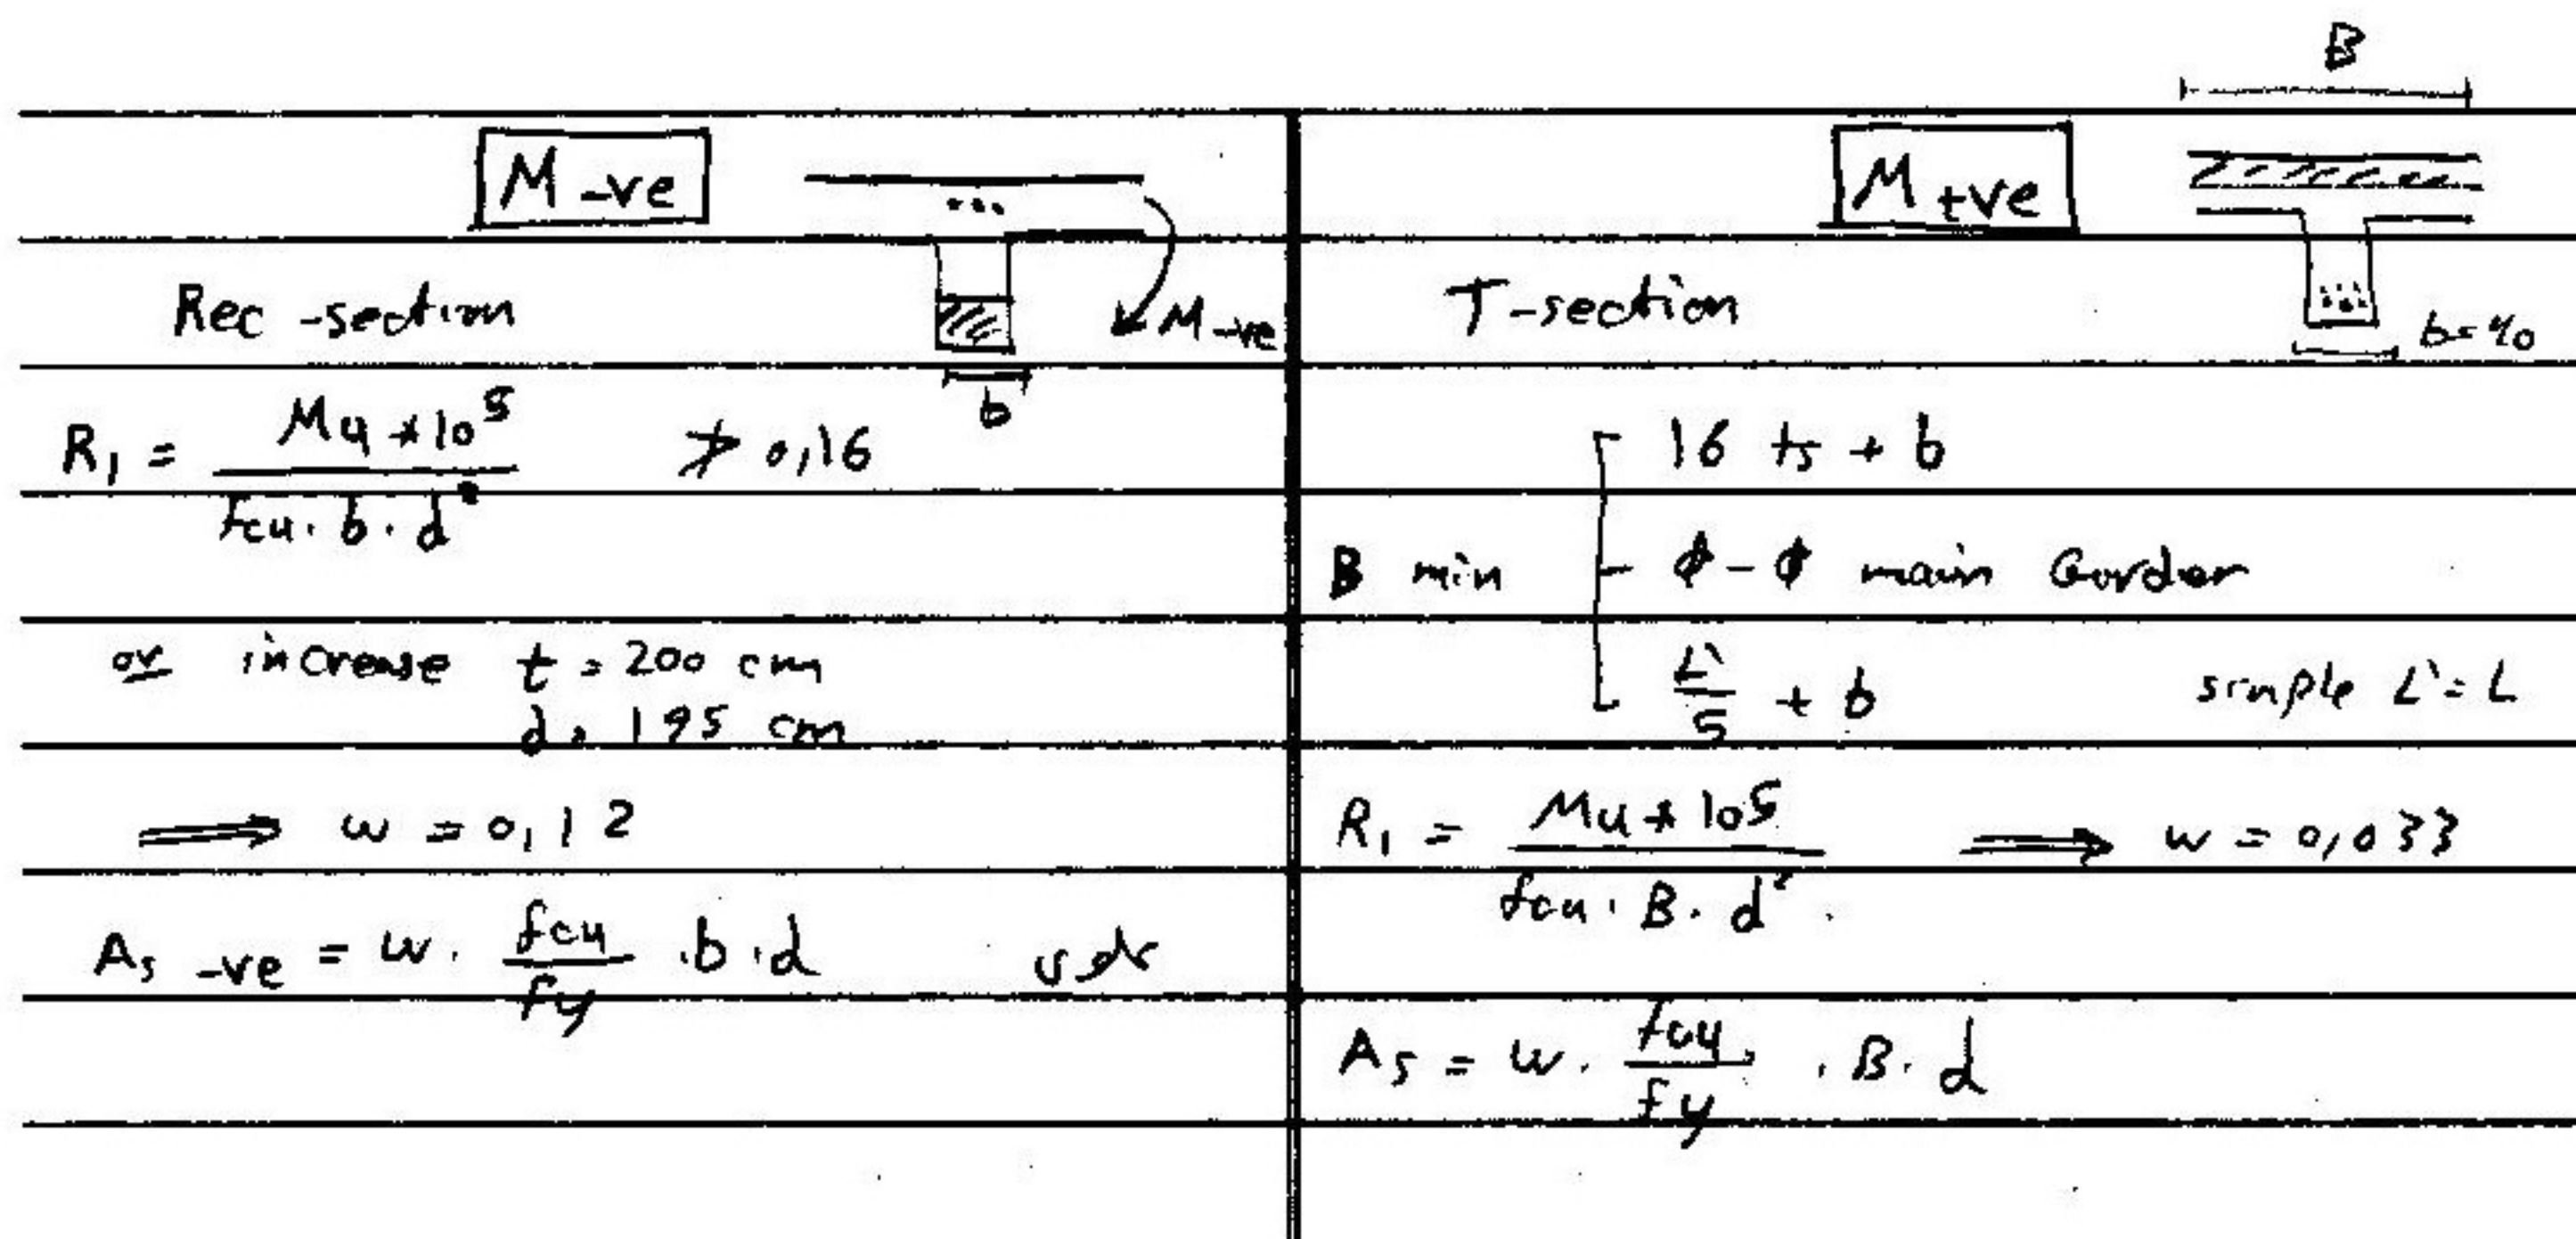 M -ve
Rec-section
M -ve
b
R1 = Mu * 10^5 / fcu . b . d² ≯ 0,16
or increase t = 200 cm
d = 195 cm
⟹ w = 0,12
As -ve = w . fcu / fy . b . d
B
M +ve
T-section
16 ts + b
B min
main Gorder
L' / 5 + b simple L' = L
R1 = Mu * 10^5 / fcu . B . d² ⟹ w = 0,033
As = w . fcu / fy . B . d